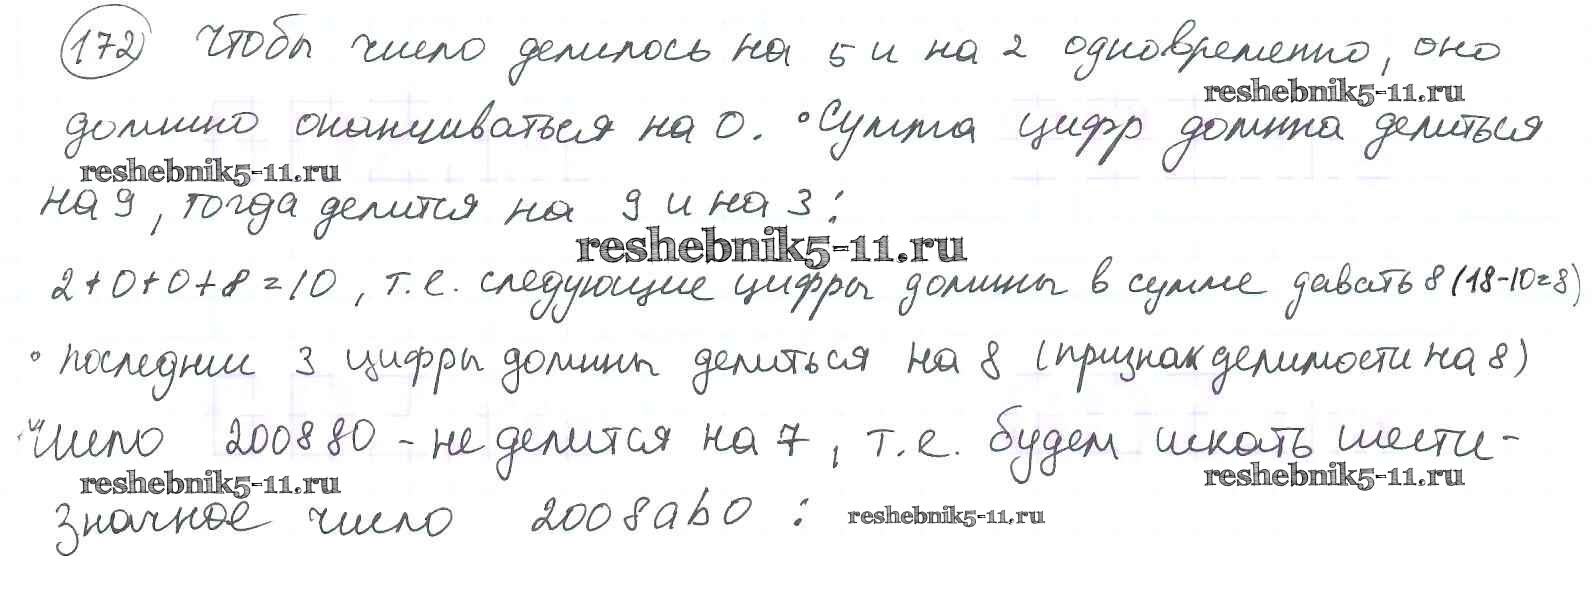 172 Чтобы число делилось на 5 и на 2 одновременно, оно
reshebnik5-11.ru
должно оканчиваться на 0. • Сумма цифр должна делиться
reshebnik5-11.ru
на 9, тогда делится на 9 и на 3:
reshebnik5-11.ru
2+0+0+8=10, т.е. следующие цифры должны в сумме давать 8 (18-10=8)
• последние 3 цифры должны делиться на 8 (признак делимости на 8)
Число 200880 - не делится на 7, т.е. будем искать шести-
reshebnik5-11.ru reshebnik5-11.ru
значное число 2008ab0 : reshebnik5-11.ru